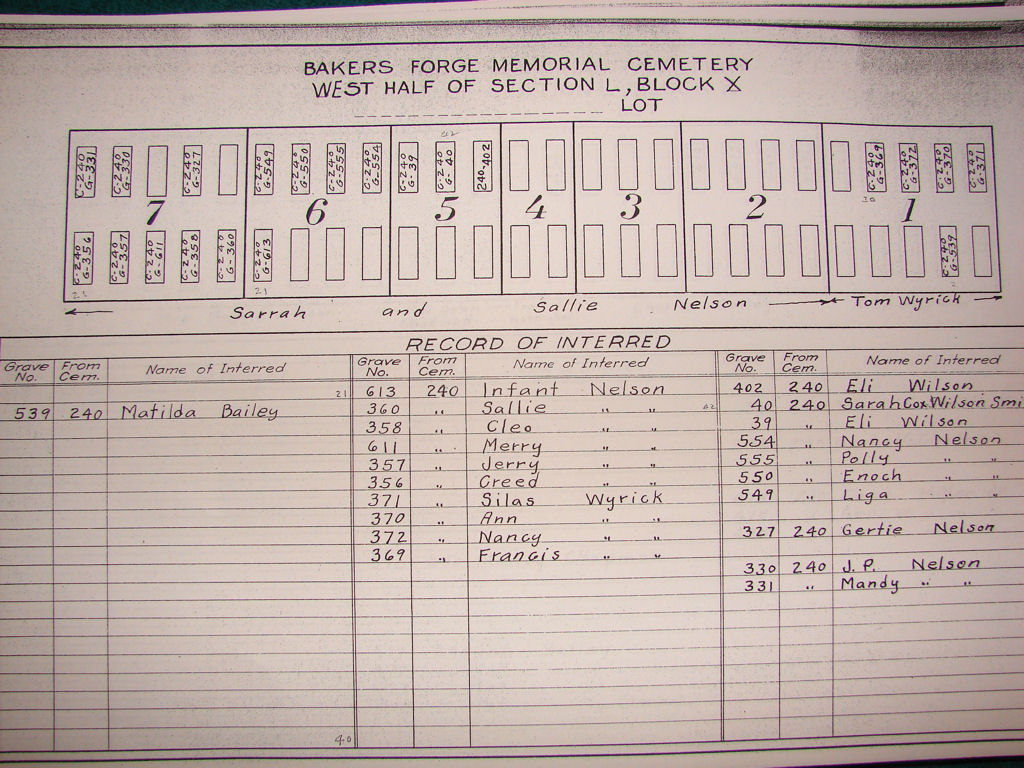 BAKERS FORGE MEMORIAL CEMETERY
WEST HALF OF SECTION L, BLOCK X
LOT
42
C-240 G-331
C-240 G-330
C-240 G-327
C-240 G-549
C-240 G-550
C-240 G-555
C-240 G-554
C-240 G-39
C-240 G-40
240-402
C-240 G-369
C-240 G-372
C-240 G-370
C-240 G-371
7 6 5 4 3 2 1
C-240 G-356
C-240 G-357
C-240 G-611
C-240 G-358
C-240 G-360
C-240 G-613
C-240 G-539
21 21
Sarrah and Sallie Nelson Tom Wyrick
RECORD OF INTERRED
Grave No. From Cem. Name of Interred Grave No. From Cem. Name of Interred Grave No. From Cem. Name of Interred
21 613 240 Infant Nelson 402 240 Eli Wilson
539 240 Matilda Bailey 360 " Sallie " " 42 40 240 Sarah Cox Wilson Smi
358 " Cleo " " 39 " Eli Wilson
611 " Merry " " 554 " Nancy Nelson
357 " Jerry " " 555 " Polly " "
356 " Creed " " 550 " Enoch " "
371 " Silas Wyrick 549 " Liga " "
370 " Ann " "
372 " Nancy " " 327 240 Gertie Nelson
369 " Francis " "
330 240 J.P. Nelson
331 " Mandy " "
40